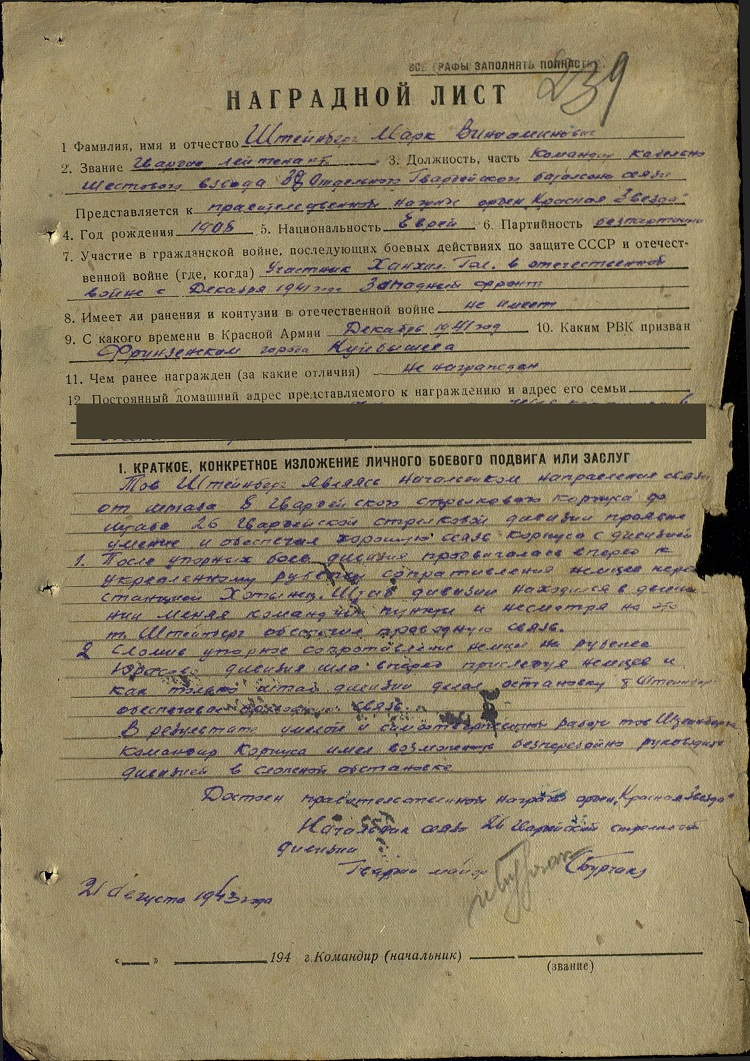 ВСЕ ГРАФЫ ЗАПОЛНЯТЬ ПОЛНОСТЬЮ
239
НАГРАДНОЙ ЛИСТ
1 Фамилия, имя и отчество Штейнберг Марк
2. Звание Гвардии лейтенант 3. Должность, часть Командир кабельно
шестового взвода Отдельного Гвардейского батальона связи
Представляется к правительственной награде орден „Красная Звезда"
4. Год рождения 5. Национальность Еврей 6. Партийность безпартийный
7. Участие в гражданской войне, последующих боевых действиях по защите СССР и отечест-
венной войне (где, когда) Участник в отечественной
войне с Декабря 1941 года Западный фронт
8. Имеет ли ранения и контузии в отечественной войне не имеет
9. С какого времени в Красной Армии Декабрь 1941 год 10. Каким РВК призван
Фрунзенским города Куйбышева
11. Чем ранее награжден (за какие отличия) не награжден
12 Постоянный домашний адрес представляемого к награждению и адрес его семьи
I. КРАТКОЕ, КОНКРЕТНОЕ ИЗЛОЖЕНИЕ ЛИЧНОГО БОЕВОГО ПОДВИГА ИЛИ ЗАСЛУГ
Тов Штейнберг являясь Начальником направления связи
от штаба 8 Гвардейского стрелкового корпуса до
штаба 26 Гвардейской стрелковой дивизии проявил
умение и обеспечил хорошую связь корпуса с дивизией
1. После упорных боев дивизия продвигалась вперед к
укрепленному рубежу сопративления немцев перед
станцией Хотынец. Штаб дивизии находился в движе
нии меняя командный пункты и несмотря на это
т. Штейнберг обеспечил проводную связь.
2 Сломив упорное сопротивление немцев на рубеже
дивизия шла вперед преследуя немцев и
как только штаб дивизии делал остановку т Штейнберг
обеспечивал связь.
В результате умелой и самоотверженной работы тов Штейнберга
Командир Корпуса имел возможность безперебойно руководить
дивизией в сложной обстановке
Достоин правительственной награды орден „Красная Звезда"
Начальник связи 26 Гвардейской стрелковой
дивизии
Гвардии майор
21 Августа 1943 года
„ " 194 г. Командир (начальник)
(звание)